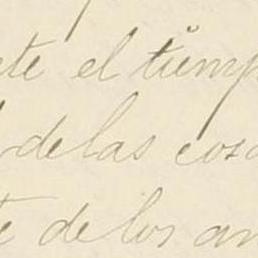 ete el tiemp
delas cosa
te delos an